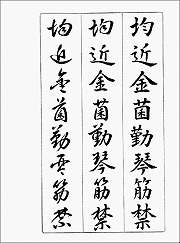 均近金菌勤琴筋禁
均近金菌勤琴筋禁
均近金菌勤琴筋禁